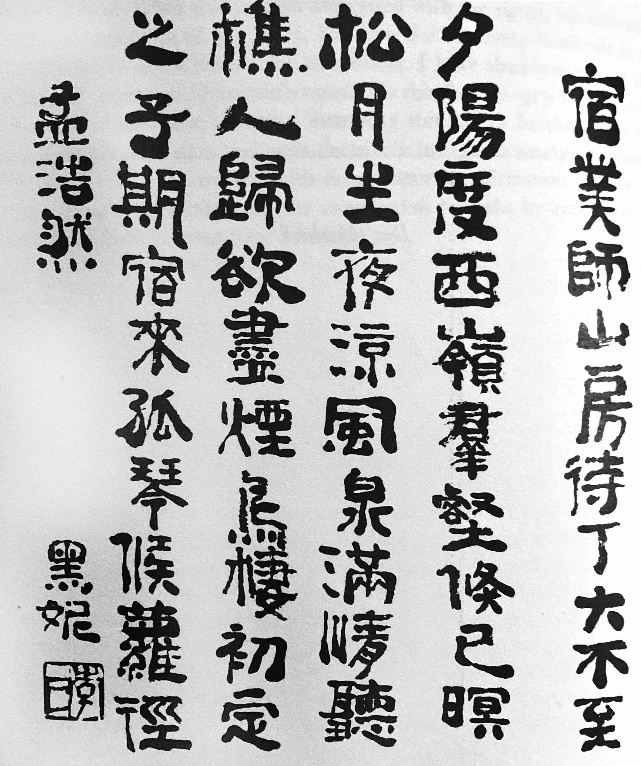 宿業師山房待丁大不至
夕陽度西嶺羣壑倏已暝
松月生夜涼風泉滿清聽
樵人歸欲盡煙鳥棲初定
之子期宿來孤琴候蘿徑
孟浩然
黑妃